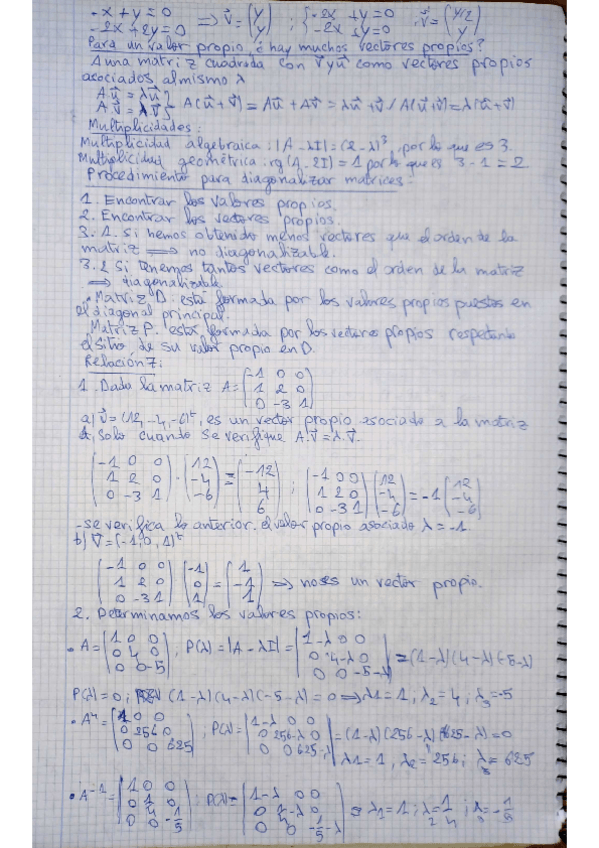 -x + y = 0
-2x + 2y = 0 ⟹ v⃗ = (y y) ; { -2x + y = 0 -2x + y = 0 ; v⃗ = (y/2 y)
Para un valor propio, ¿hay muchos vectores propios?
A una matriz cuadrada con v⃗ y u⃗ como vectores propios
asociados al mismo λ
A.u⃗ = λu⃗
A.v⃗ = λ.v⃗ } A(u⃗+v⃗) = Au⃗ + Av⃗ = λu⃗ + v⃗ / A(u⃗+v⃗) = λ(u⃗+v⃗)
Multiplicidades:
Multiplicidad algebraica: |A - λI| = (2-λ)³, por lo que es 3.
Multiplicidad geométrica: rg(A, 2I) = 1 por lo que es 3-1=2
Procedimiento para diagonalizar matrices:
1. Encontrar los valores propios.
2. Encontrar los vectores propios.
3.1. Si hemos obtenido menos vectores que el orden de la
matriz ⟹ no diagonalizable.
3.2 Si tenemos tantos vectores como el orden de la matriz
⟹ diagonalizable.
• Matriz D: está formada por los valores propios puestos en
el diagonal principal.
Matriz P: está formada por los vectores propios respetando
el sitio de su valor propio en D.
Relación 7:
1. Dada la matriz A = (-1 0 0 / 1 2 0 / 0 -3 1)
a) v⃗ = (12, -4, -6)ᵗ, es un vector propio asociado a la matriz
A, solo cuando se verifique A.v⃗ = λ.v⃗.
(-1 0 0 / 1 2 0 / 0 -3 1) · (12 / -4 / -6) = (-12 / 4 / 6) ; (-1 0 0 / 1 2 0 / 0 -3 1) (12 / -4 / -6) = -1 (12 / -4 / -6)
- se verifica lo anterior. el valor propio asociado λ = -1
b) v⃗ = (-1, 0, 1)ᵗ
(-1 0 0 / 1 2 0 / 0 -3 1) (-1 / 0 / 1) = (1 / -1 / 1) ⟹ no es un vector propio.
2. Determinamos los valores propios:
• A = (1 0 0 / 0 4 0 / 0 0 -5), P(λ) = |A - λI| = |1-λ 0 0 / 0 4-λ 0 / 0 0 -5-λ| = (1-λ)(4-λ)(-5-λ)
P(λ) = 0; (1-λ)(4-λ)(-5-λ) = 0 ⟹ λ1 = 1, λ₂ = 4; λ₃ = -5
• A⁴ = (1 0 0 / 0 256 0 / 0 0 625), P(λ) = |1-λ 0 0 / 0 256-λ 0 / 0 0 625-λ| = (1-λ)(256-λ)(625-λ) = 0
λ1 = 1, λ₂ = 256; λ₃ = 625
• A⁻¹ = (1 0 0 / 0 1/4 0 / 0 0 -1/5) P(λ) = |1-λ 0 0 / 0 1/4-λ 0 / 0 0 -1/5-λ| ⟹ λ1 = 1; λ₂ = 1/4; λ₃ = -1/5